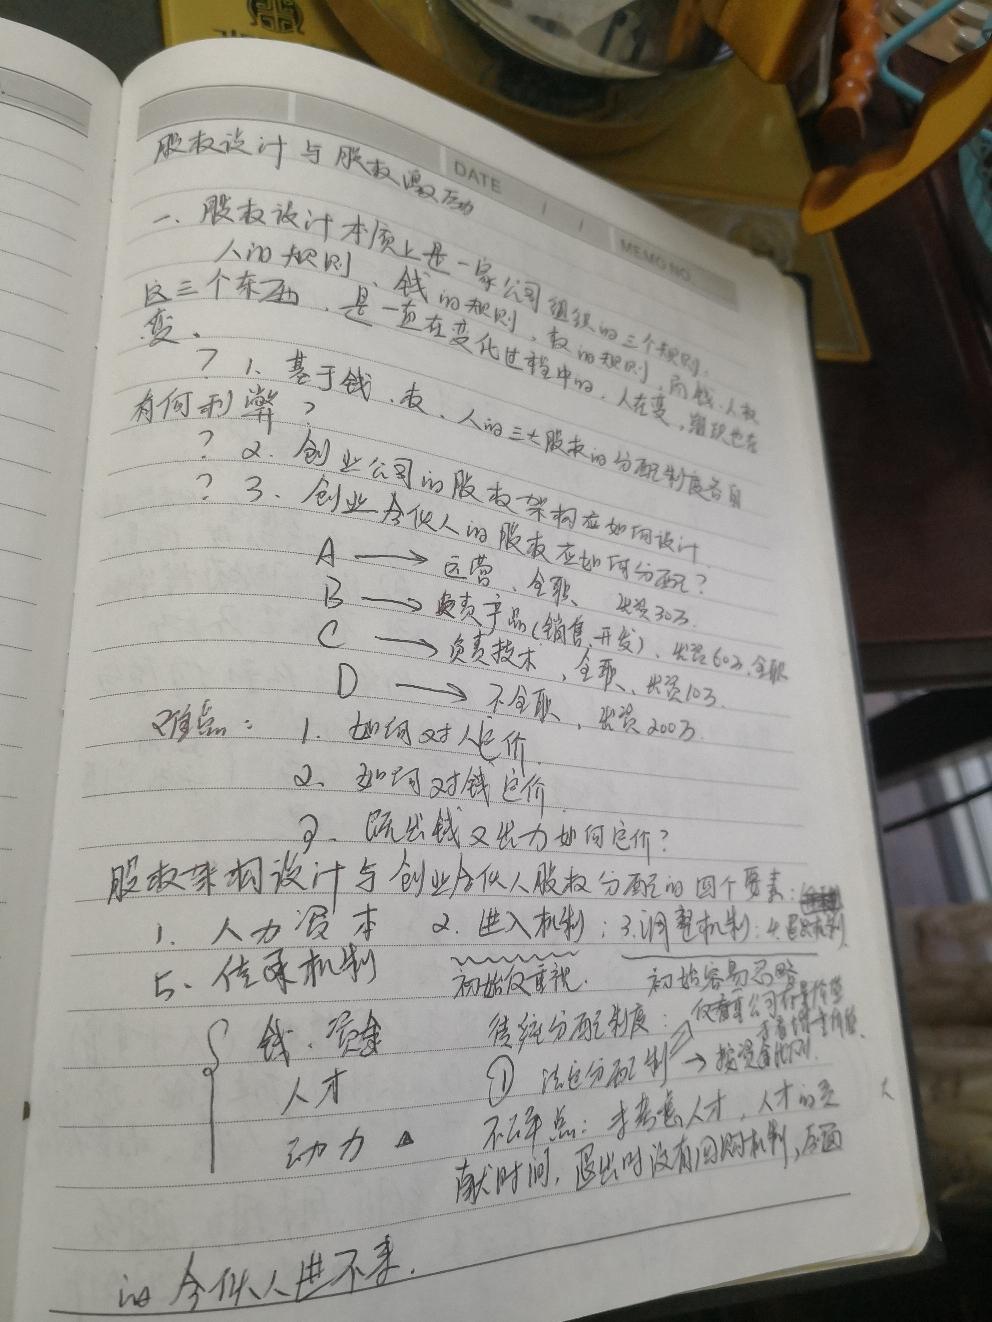 DATE
MEMO NO
股权设计与股权激励
一、股权设计本质上是一家公司组织的三个规则,
人的规则、钱的规则、权的规则,而钱、人权
这三个东西,是一直在变化过程中的,人在变,组织也在
变、
? 1. 基于钱、权、人的三大股权的分配制度各自
有何利弊?
? 2. 创业公司的股权架构应如何设计
? 3. 创业合伙人的股权应如何分配?
A → 运营、全职、出资30万.
B → 负责产品(销售、开发)、出资60万、全职
C → 负责技术、全职、出资10万.
D → 不全职、出资200万.
难点: 1. 如何对人定价.
2. 如何对钱定价.
3. 既出钱又出力如何定价?
股权架构设计与创业合伙人股权分配的四个要素:
1. 人力资本 2. 进入机制; 3. 调整机制; 4. 退出机制
5. 传承机制 初始仅重视. 初始容易忽略
钱、资金 传统分配制度: 仅看重公司存量价值
不看增量价值、
人才 ① 法定分配制 → 按资金比例.
动力 ▲ 不公平点: 未考虑人才, 人才的贡
献时间, 退出时没有回购机制, 后面
的合伙人进不来.